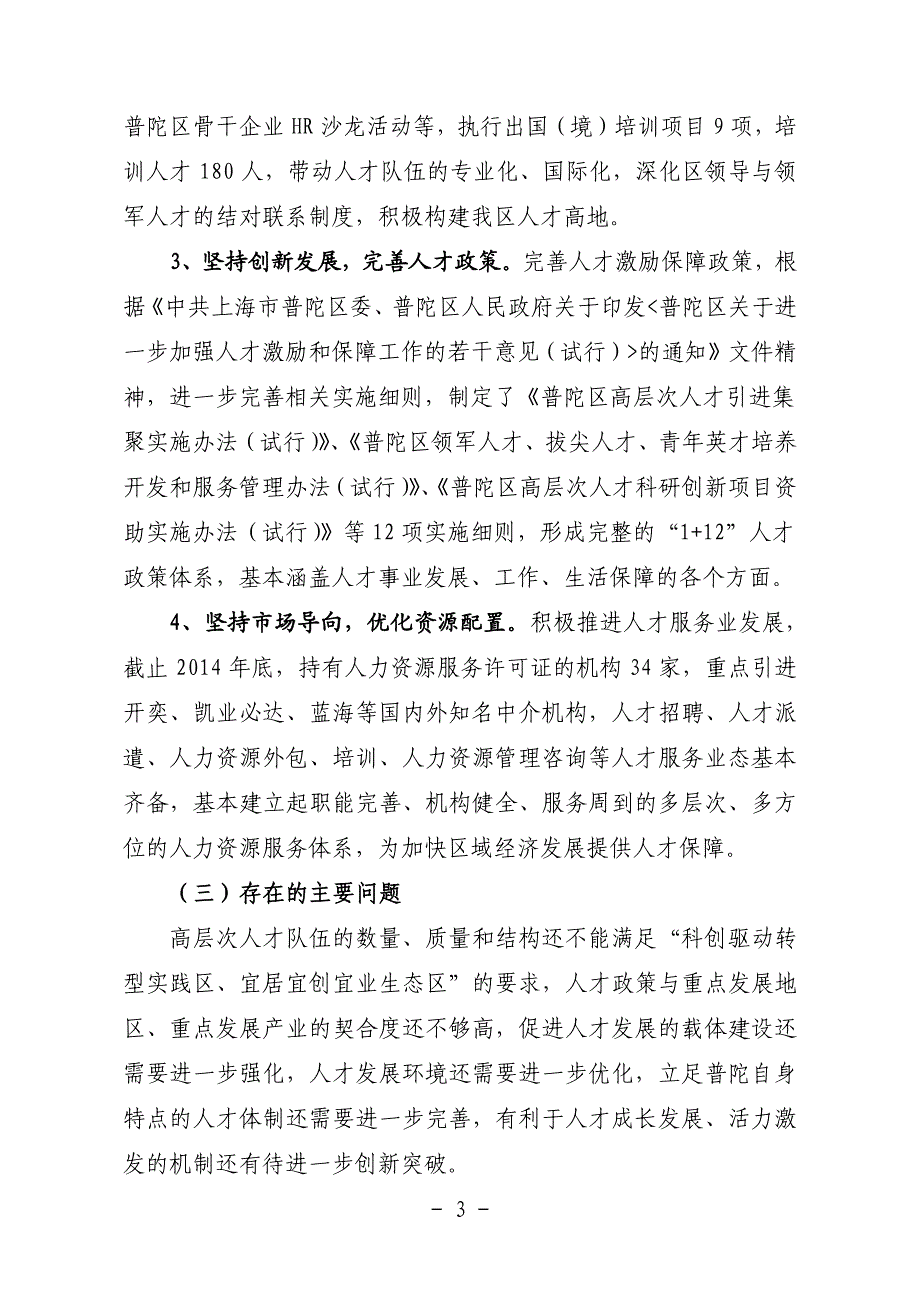 普陀区骨干企业 HR 沙龙活动等，执行出国（境）培训项目 9 项，培
训人才 180 人，带动人才队伍的专业化、国际化，深化区领导与领
军人才的结对联系制度，积极构建我区人才高地。
3、坚持创新发展，完善人才政策。完善人才激励保障政策，根
据《中共上海市普陀区委、普陀区人民政府关于印发<普陀区关于进
一步加强人才激励和保障工作的若干意见（试行）>的通知》文件精
神，进一步完善相关实施细则，制定了《普陀区高层次人才引进集
聚实施办法（试行）》、《普陀区领军人才、拔尖人才、青年英才培养
开发和服务管理办法（试行）》、《普陀区高层次人才科研创新项目资
助实施办法（试行）》等 12 项实施细则，形成完整的“1+12”人才
政策体系，基本涵盖人才事业发展、工作、生活保障的各个方面。
4、坚持市场导向，优化资源配置。积极推进人才服务业发展，
截止 2014 年底，持有人力资源服务许可证的机构 34 家，重点引进
开奕、凯业必达、蓝海等国内外知名中介机构，人才招聘、人才派
遣、人力资源外包、培训、人力资源管理咨询等人才服务业态基本
齐备，基本建立起职能完善、机构健全、服务周到的多层次、多方
位的人力资源服务体系，为加快区域经济发展提供人才保障。
（三）存在的主要问题
高层次人才队伍的数量、质量和结构还不能满足“科创驱动转
型实践区、宜居宜创宜业生态区”的要求，人才政策与重点发展地
区、重点发展产业的契合度还不够高，促进人才发展的载体建设还
需要进一步强化，人才发展环境还需要进一步优化，立足普陀自身
特点的人才体制还需要进一步完善，有利于人才成长发展、活力激
发的机制还有待进一步创新突破。
- 3 -